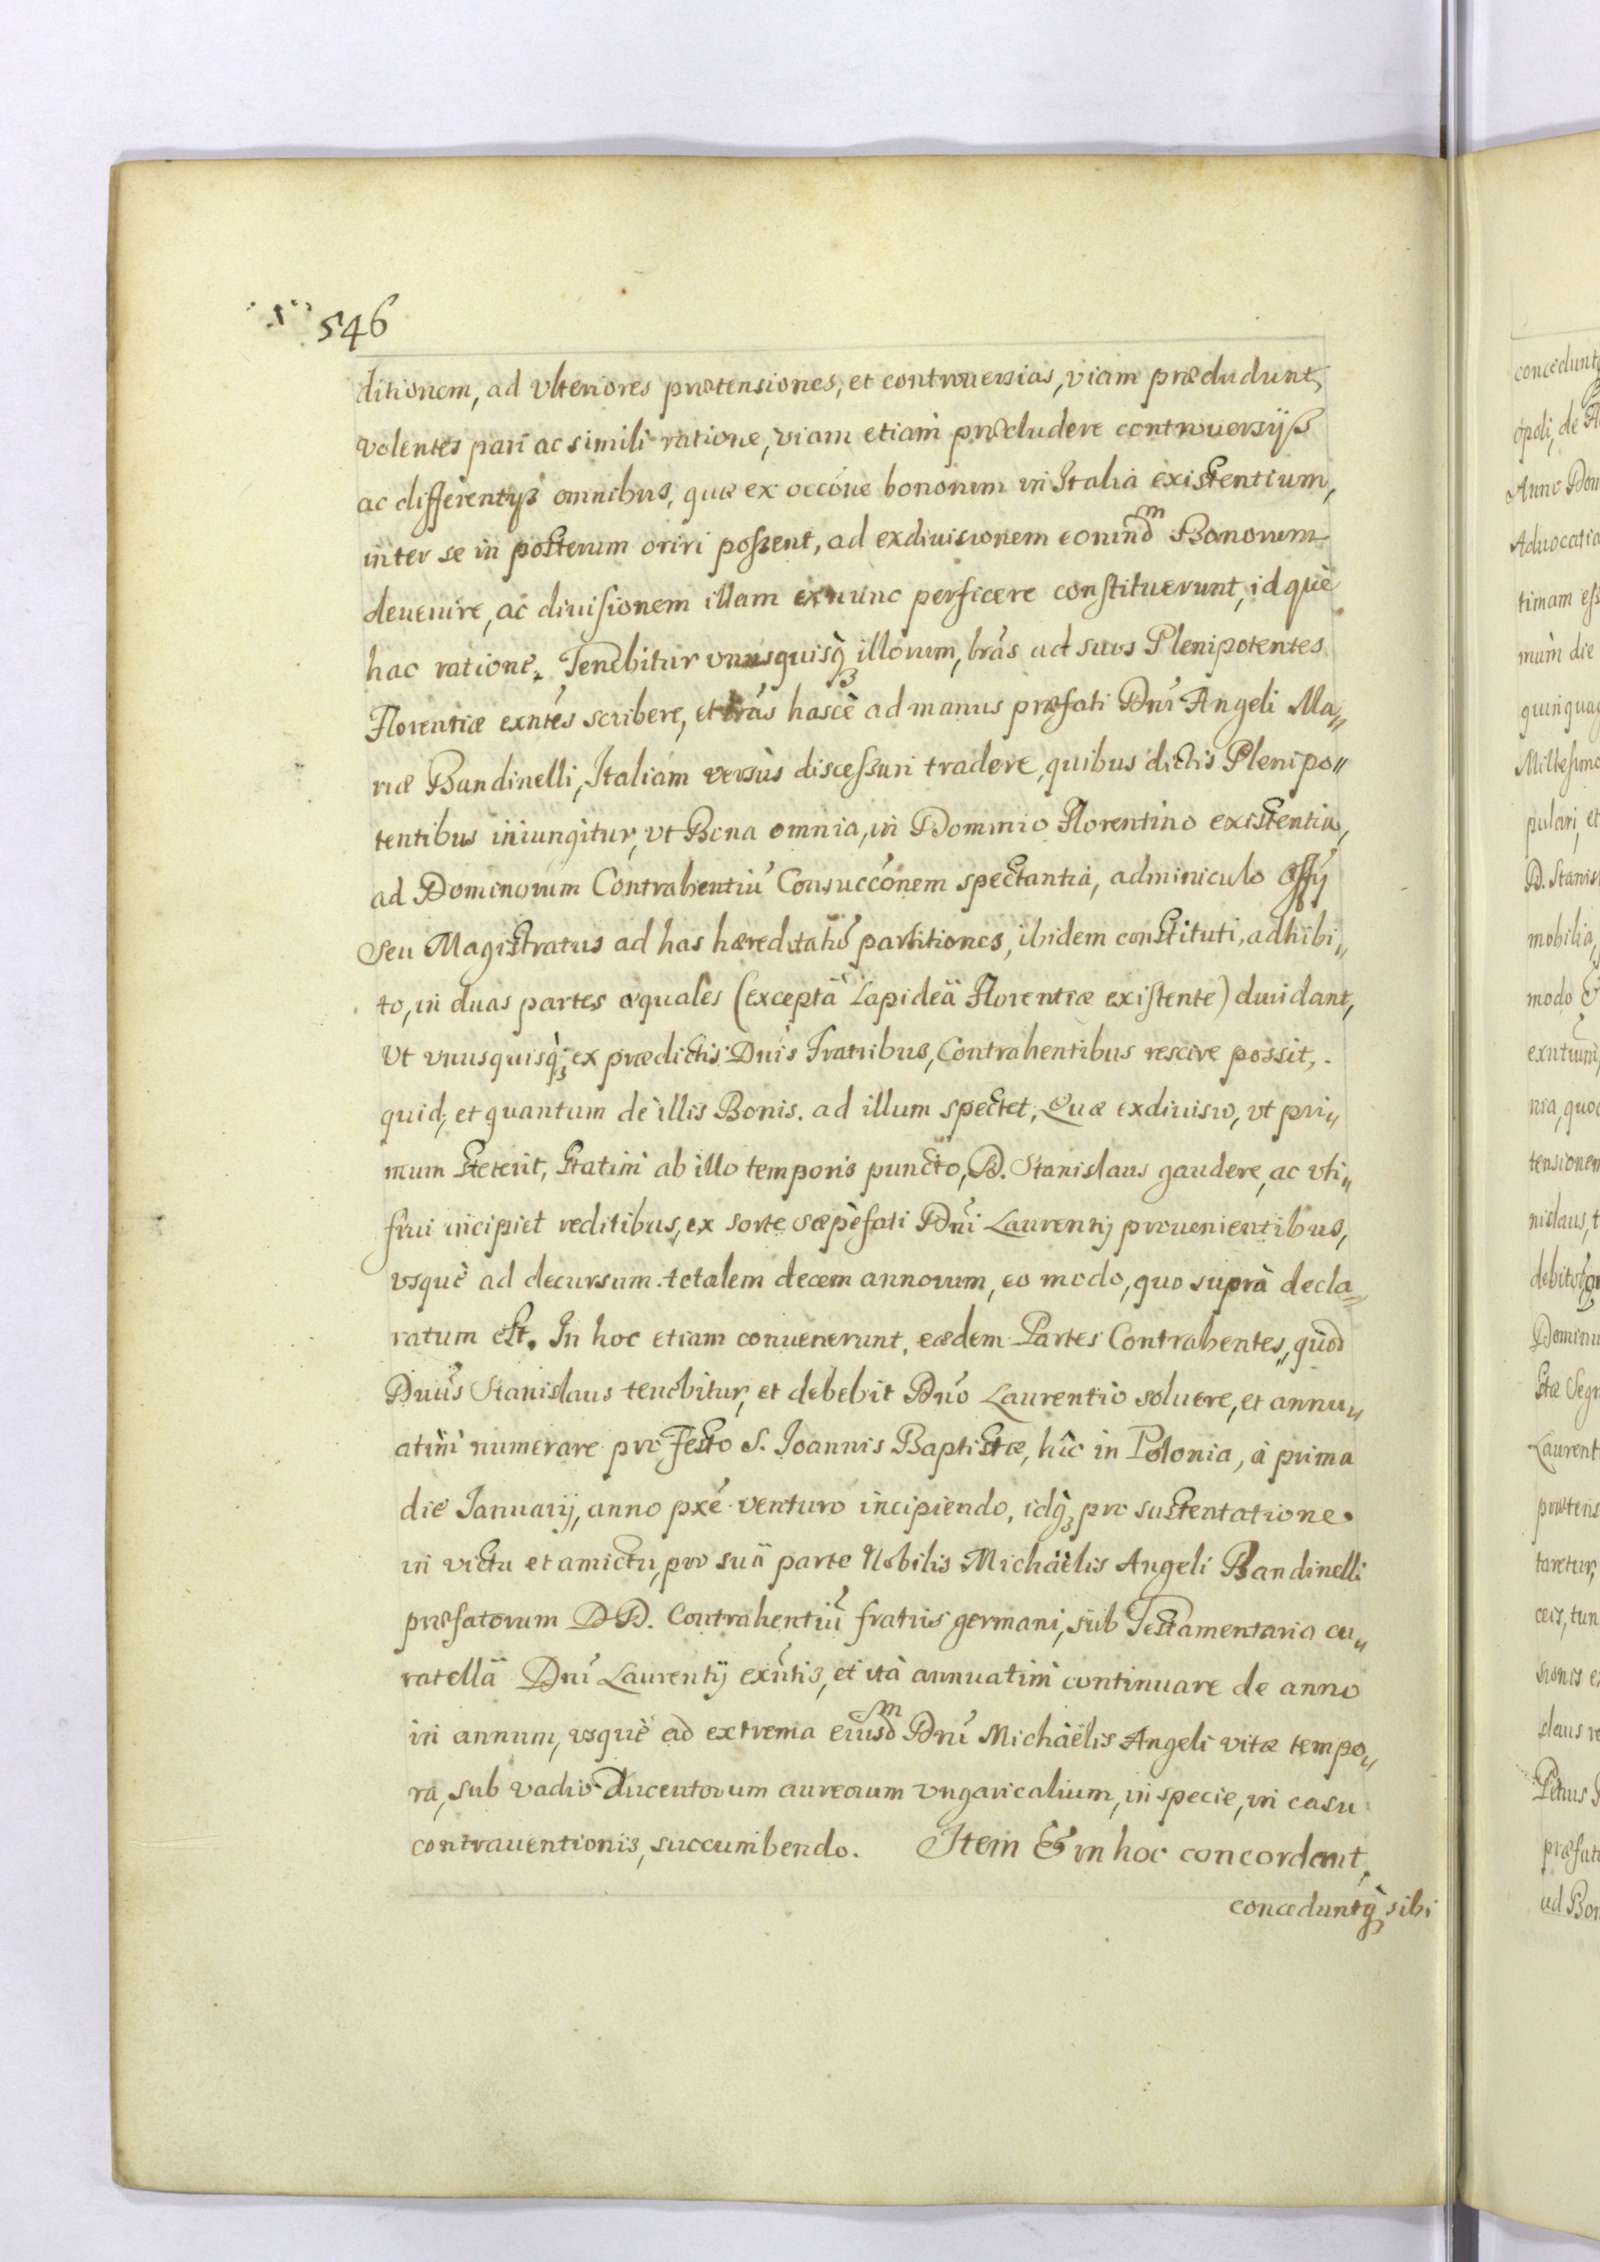 546
ditionem, ad vlteriores prætensiones, et controuersias, viam præcludunt,
volentes pari ac simili ratione, viam etiam præcludere controuersijs
ac differentijs omnibus, quæ ex occõne bonorum in Italia existentium,
inter se in posterum oriri possent, ad exdiuisionem eorundm Bonorum
deuenire, ac diuisionem illam exnunc perficere constituerunt, idquè
hac ratione, Tenebitur vnusquisq̀3 illorum, lrãs ad suos Plenipotentes
Florentiæ exntẽs scribere, et lrãs hascè ad manus præfati Dnĩ Angeli Ma„
riæ Bandinelli, Italiam versùs discessuri tradere, quibus dictis Plenipo„
tentibus iniungitur, vt Bona omnia, in Dominio Florentino existentia,
ad Dominorum Contrahentiũ Consuccõnem spectantia, adminiculo Offĩj
seu Magistratus ad has hæreditatũ partitiones, ibidem constituti, adhibi„
to, in duas partes æquales (exceptâ Lapideâ Florentiæ existente) diuidant,
vt vnusquisq̀3 ex prædictis Dnĩs Fratribus, Contrahentibus rescire possit,
quid, et quantum de illis Bonis. ad illum spectet, Quæ exdiuisio, vt pri„
mum steterit, statim ab illo temporis puncto, D. Stanislaus gaudere, ac vti„
frui incipiet reditibus, ex sorte sæpèfati Dnĩ Laurentij prouenientibus,
vsquè ad decursum totalem decem annorum, eo modo, quo suprà decla„
ratum est. In hoc etiam conuenerunt, eædem Partes Contrahentes, quòd
Dnũs Stanislaus tenebitur, et debebit Dnõ Laurentio soluere, et annu„
atim numerare pro Festo S. Ioannis Baptistæ, hîc in Polonia, à prima
die Ianuarij, anno pxẽ venturo incipiendo, idq̀3 pro sustentatione
in victu et amictu, pro suâ parte Nobilis Michaëlis Angeli Bandinelli
præfatorum DD. Contrahentiũ fratris germani, sub Testamentaria cu„
ratellâ Dnĩ Laurentij exñtis, et ità annuatim continuare de anno
in annum, vsquè ad extrema eiusdm Dnĩ Michaëlis Angeli vitæ tempo„
ra, sub vadio Ducentorum aureorum vngaricalium, in specie, in casu
contrauentionis, succumbendo. Item & in hoc concordant,
conceduntq̀3 sibi